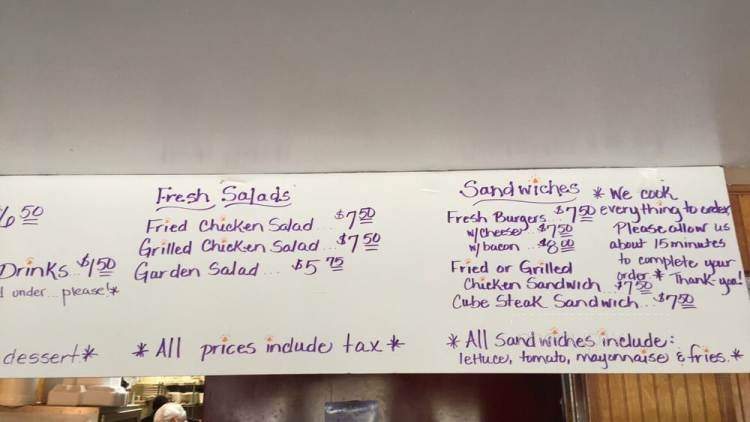 6 50
Drinks.. $1 50
under... please!*
dessert*
Fresh Salads
Fried Chicken Salad.... $7 50
Grilled Chicken Salad.... $7 50
Garden Salad.... $5 75
* All prices include tax *
Sandwiches
Fresh Burgers... $7 50
w/cheese... $7 50
w/bacon... $8 00
Fried or Grilled
Chicken Sandwich... $7 50
Cube Steak Sandwich... $7 50
* We cook
everything to order
Please allow us
about 15 minutes
to complete your
order * Thank-you!
* All Sandwiches include:
lettuce, tomato, mayonnaise & fries.*